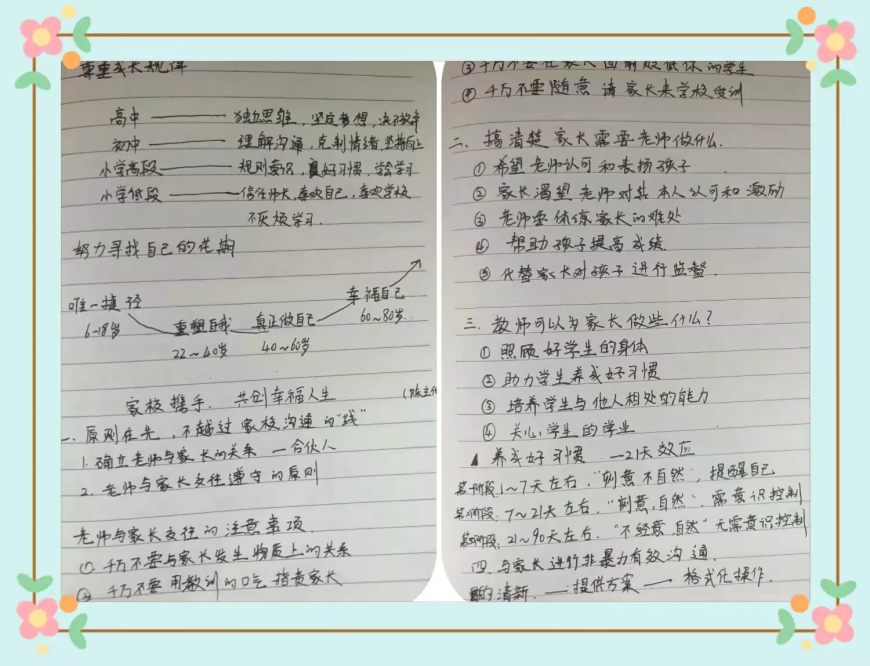 尊重成长规律
高中 —— 独立思维，坚定梦想，决不放弃
初中 —— 理解沟通，克制情绪，坚持向上
小学高段 —— 规则意识，良好习惯，学会学习
小学低段 —— 信任师长，喜欢自己，喜欢学校
不厌烦学习.
努力寻找自己的花期
唯一捷径
6-18岁
重塑自我
22~40岁
真正做自己
40~60岁
幸福自己
60~80岁.
家校携手，共创幸福人生
一、原则在先，不越过家校沟通的"线"
1. 确立老师与家长的关系 —合伙人
2. 老师与家长交往遵守的原则
老师与家长交往的注意事项.
① 千万不要与家长发生物质上的关系
② 千万不要用教训的口气指责家长
③ 千万不要在家人面前贬低你的学生
④ 千万不要随意请家长来学校受训
二、搞清楚家长需要老师做什么.
① 希望老师认可和表扬孩子
② 家长渴望老师对其本人认可和激励
③ 老师要体谅家长的难处
④ 帮助孩子提高成绩.
⑤ 代替家长对孩子进行监督.
三、教师可以为家长做些什么?
① 照顾好学生的身体
② 助力学生养成好习惯
③ 培养学生与他人相处的能力
④ 关心学生的学业
养成好习惯 —21天效应
第一阶段: 1~7天左右，"刻意不自然"，提醒自己
第二阶段: 7~21天左右，"刻意,自然"，需意识控制
第三阶段: 21~90天左右，"不经意,自然"无需意识控制
四、与家长进行非暴力有效沟通.
清新. —— 提供方案 —— 格式化操作.